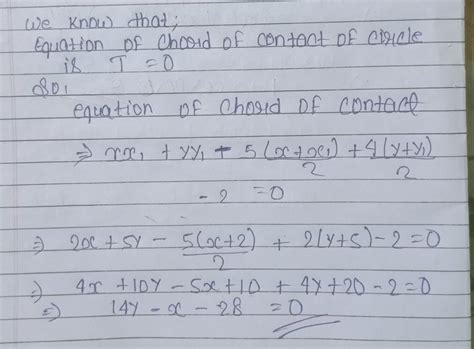 We know that;
Equation of Chord of contact of circle
is T = 0
So,
equation of Chord of contact
⇒ xx₁ + yy₁ - 5(x+x₁)/2 + 4(y+y₁)/2
- 2 = 0
⇒ 2x + 5y - 5(x+2)/2 + 2(y+5) - 2 = 0
⇒ 4x + 10y - 5x + 10 + 4y + 20 - 2 = 0
⇒ 14y - x - 28 = 0